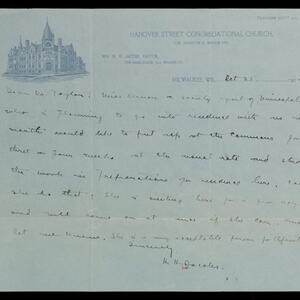 HANOVER STREET CONGREGATIONAL CHURCH,
REV. H. H. JACOBS, PASTOR,
MILWAUKEE, WIS. Oct 25
Dear Mr. Taylor: Miss a society girl of
who is planning to go into residence with us next
month would like to put up at the Commons for
three or four weeks at the usual rate and
the work in preparation for residence here. Can
she do that? She is visiting here for a few days
and will come on at once if she can.
let me know. She is a very acceptable person
Sincerely
H. H. Jacobs.